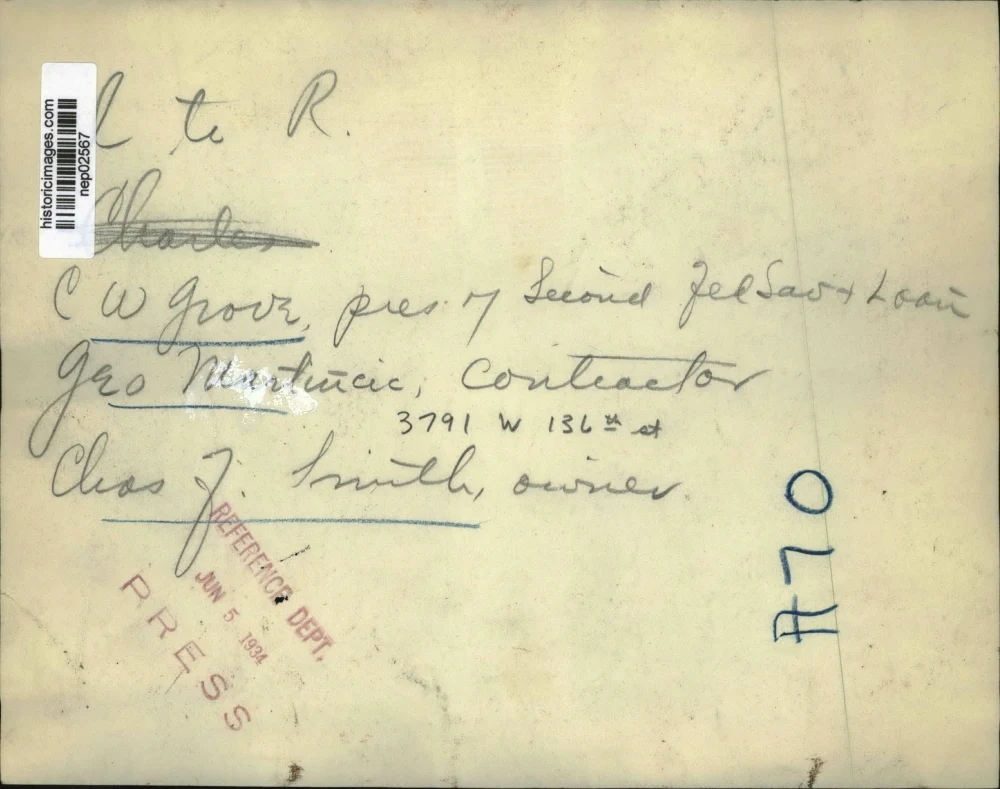 historicimages.com
nep02567
L to R.
Charles
C W Grove, pres of Second Fed Sav + Loan
Geo Martincic, Contractor
3791 W 136th st
Chas J. Smith, owner
REFERENCE DEPT.
JUN 5 1934
PRESS
A70